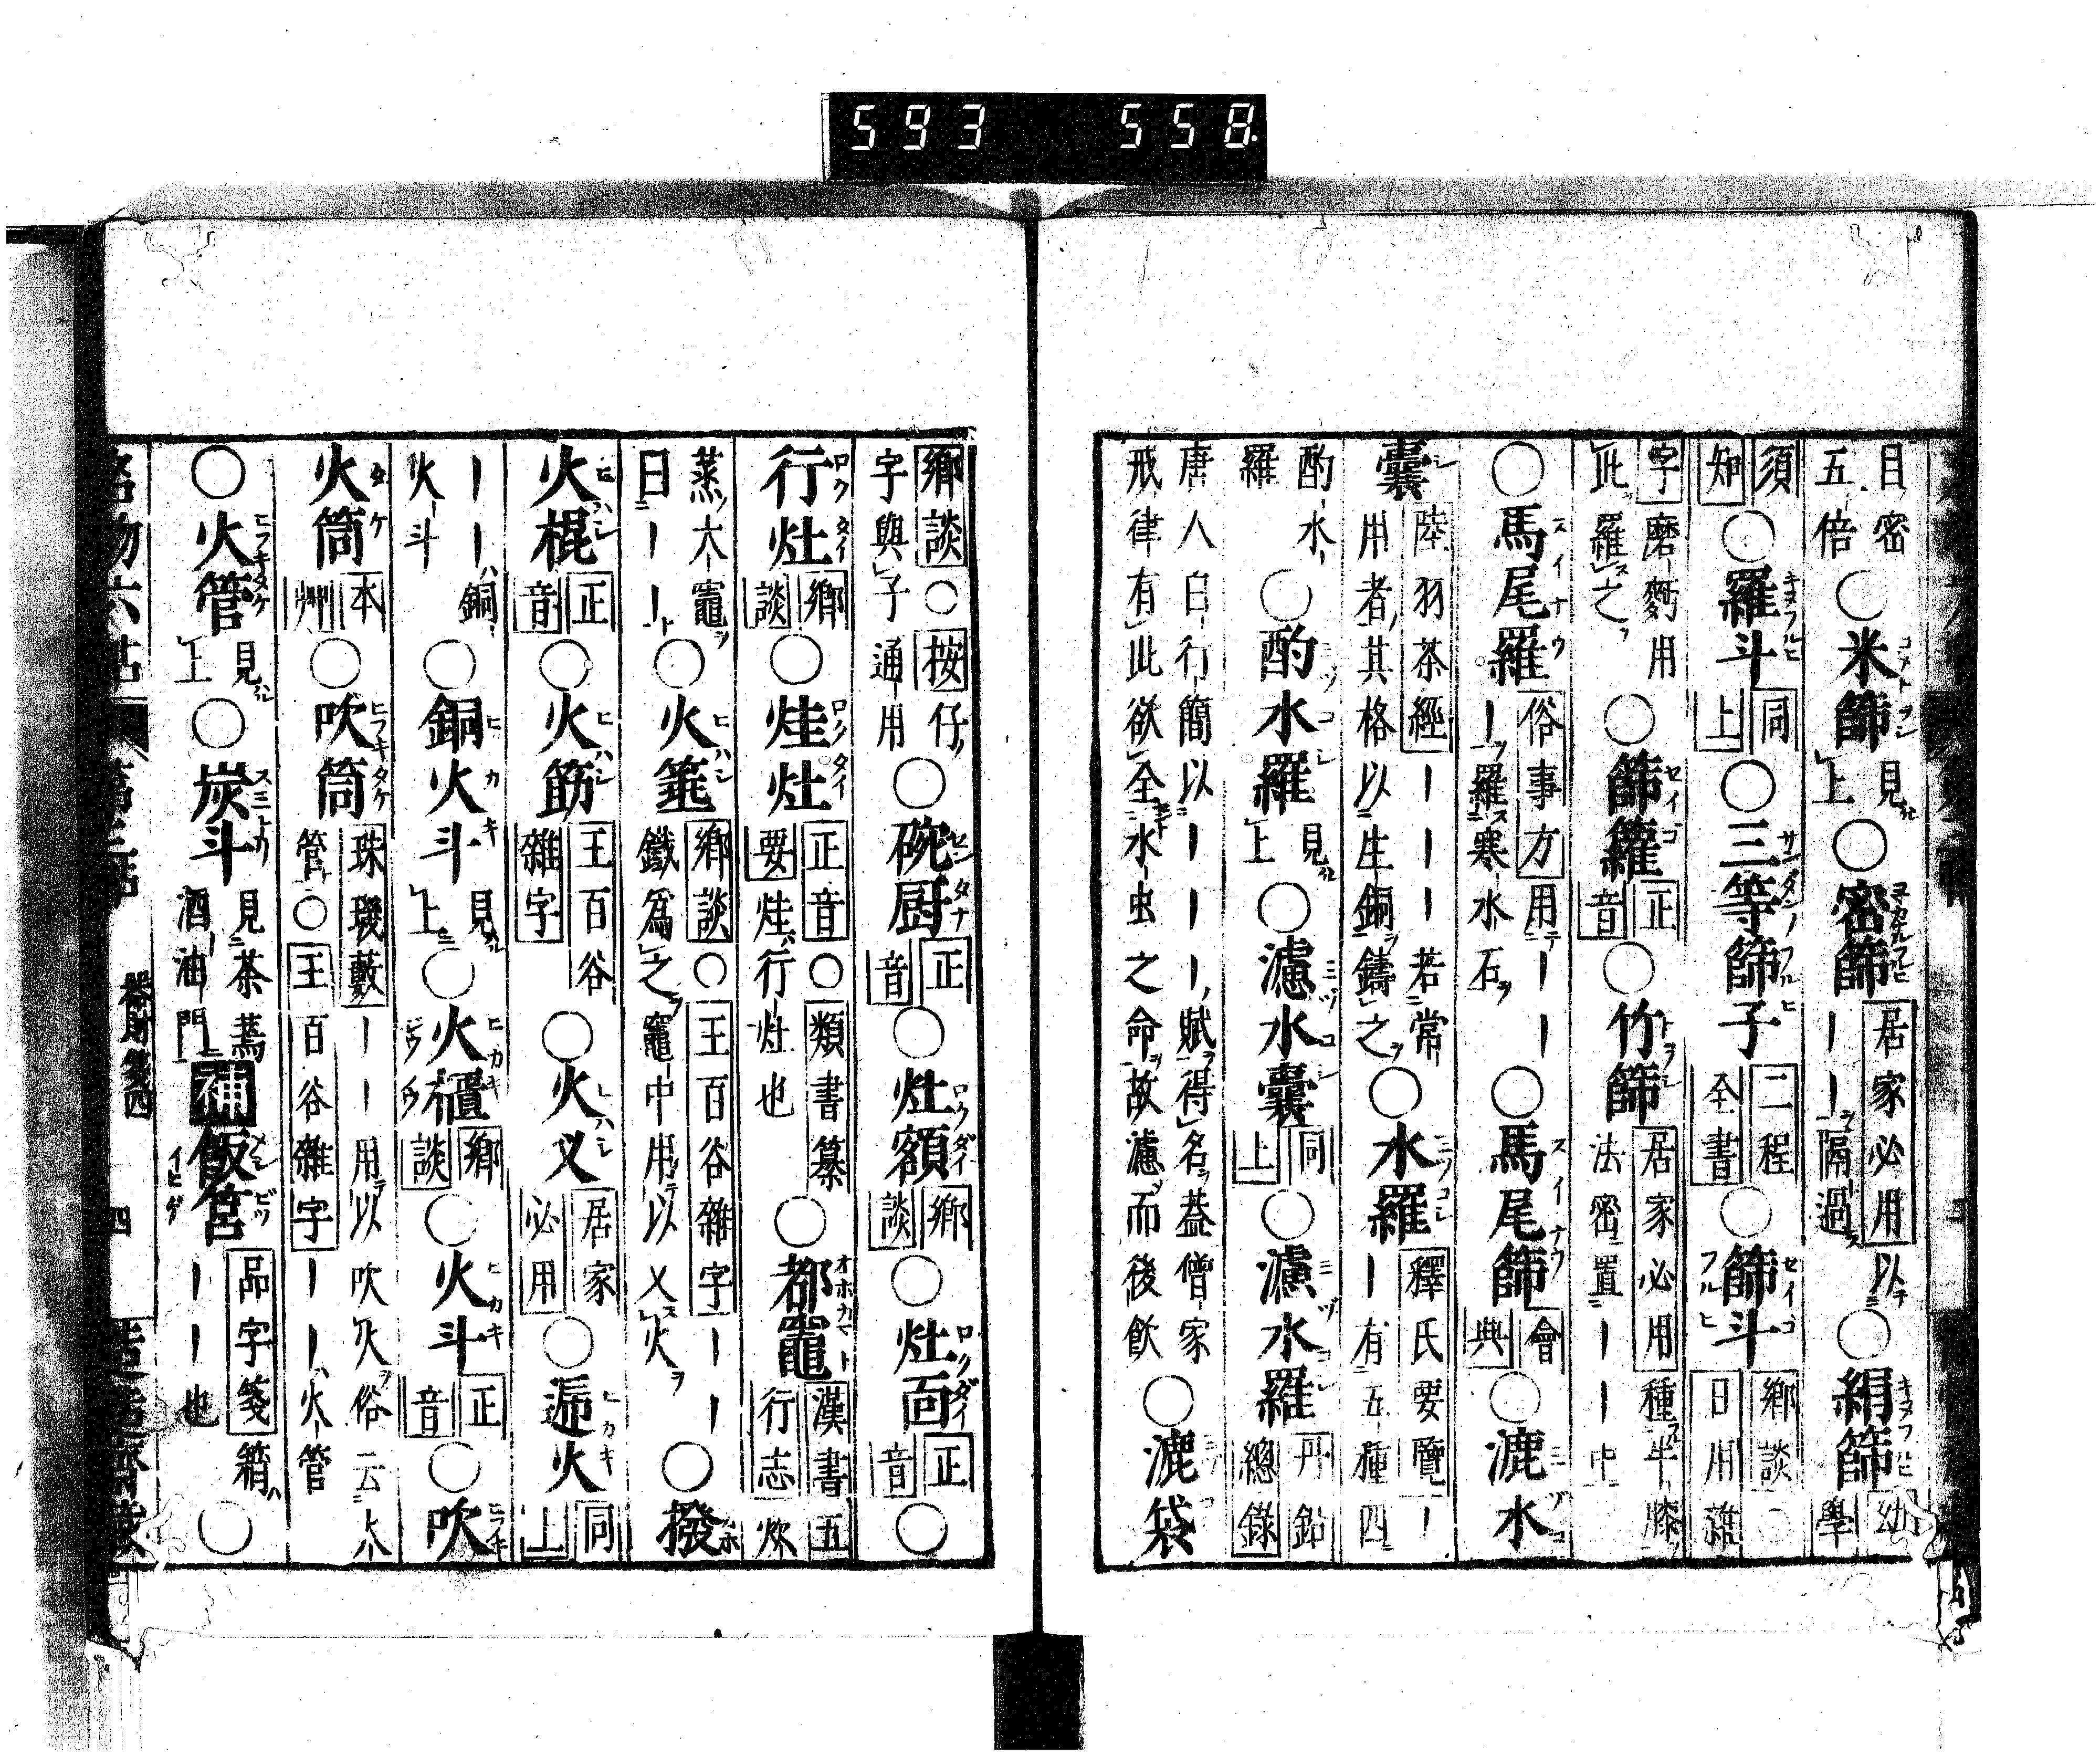 593 558
目密五倍○米篩見上○密篩居家必用以ーー隔過○絹篩幼學
須知○羅斗同上○三等篩子二程全書○篩斗鄉談日用雜
字磨麪用此羅之○篩籮正音○竹篩居家必用種牛膝法密置ーー中
○馬尾羅俗事方用ーーー羅寒水石○馬尾篩會典○漉水
囊陸羽茶經ーーー若常用者其格以生銅鑄之○水羅釋氏要覽ーー有五種四
酌水羅○酌水羅見上○濾水囊同上○濾水羅丹鉛總錄
唐人白行簡以ーーー賦得名蓋僧家戒律有此欲全水虫之命故濾而後飲○漉袋
鄉談○按仔字與子通用○碗厨正音○灶額鄉談○灶面正音○
行灶鄉談○烓灶正音○類書纂要烓行灶也○都竈漢書五行志炊
蒸大竈曰ーー○火箠鄉談○王百谷雜字ーー鐵爲之竈中用以乂火○撥
火棍正音○火筯王百谷雜字○火乂居家必用○逓火同上
ーー銅火斗○銅火斗見上○火櫃鄉談○火斗正音○吹
火筒本艸○吹筒珠璣藪ーー用以吹火俗云火管○王百谷雜字ーー火管
○火管見上○炭斗見茶蔫酒油門補飯筥品字箋箱ーー也○
名物六帖 第三帖 器財箋四 四